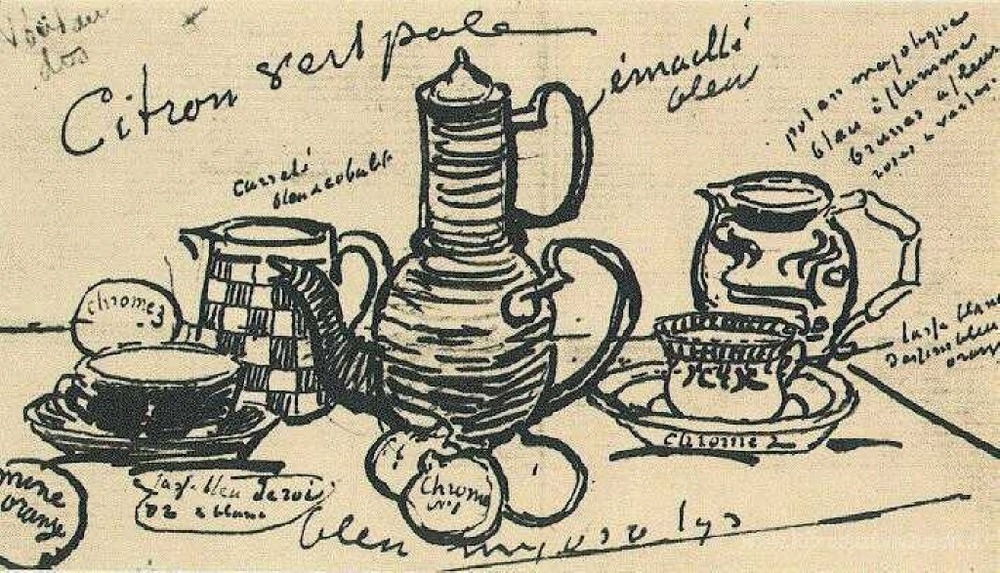 Voir au
dos
Citron vert pale
émaillé
bleu
pot en majolique
bleu à flammes
brunes à fleurs
roses & vertes
carrelé
bleu cobalt
chrome 3
tasse blanc
dessins bleus
orange
chrome 2
mine
orange
tasse bleu de roi
or & blanc
Chrome
N°1
bleu myosotys